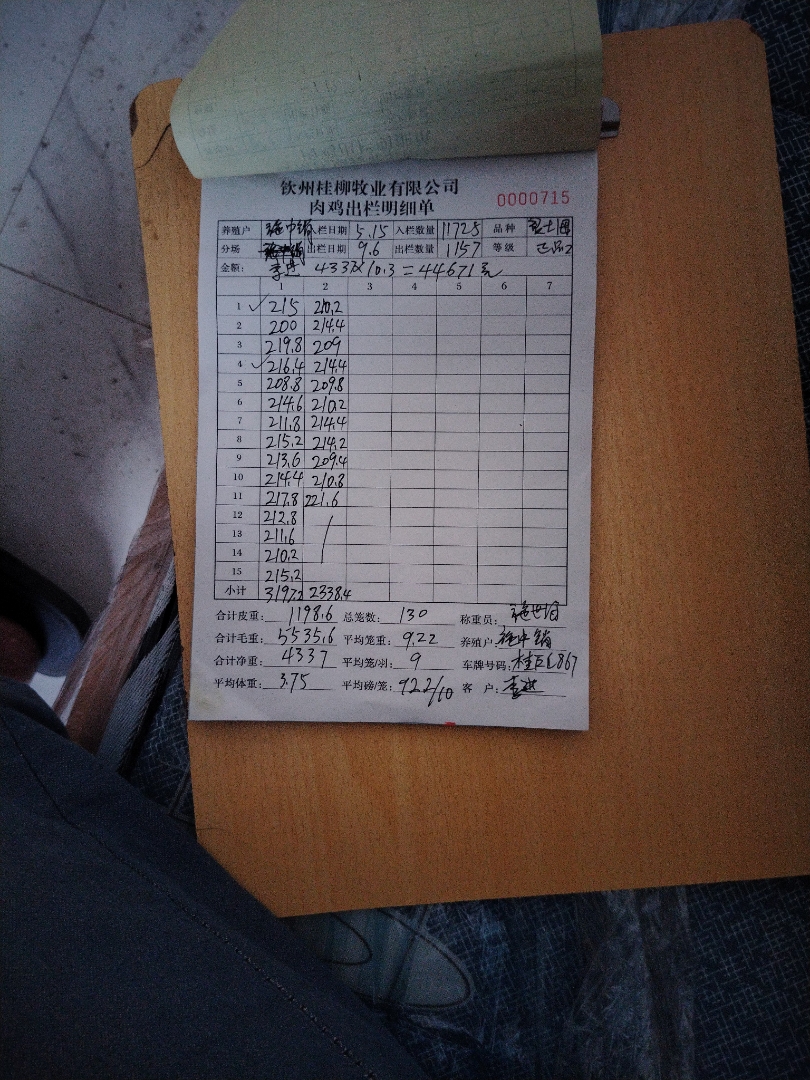 钦州桂柳牧业有限公司
肉鸡出栏明细单 0000715
养殖户 入栏日期 5.15 入栏数量 11725 品种
分场 出栏日期 9.6 出栏数量 1157 等级 正品2
金额: 李进 4337×10.3=44671元
1 2 3 4 5 6 7
1 ✓ 215 210.2
2 200 214.4
3 219.8 209
4 ✓ 216.4 214.4
5 208.8 209.8
6 214.6 210.2
7 211.8 214.4
8 215.2 214.2
9 213.6 209.4
10 214.4 210.8
11 217.8 221.6
12 212.8 /
13 211.6
14 210.2
15 215.2
小计 3197.2 2338.4
合计皮重: 1198.6 总笼数: 130 称重员:
合计毛重: 5535.6 平均笼重: 9.22 养殖户:
合计净重: 4337 平均笼/羽: 9 车牌号码:
平均体重: 3.75 平均磅/笼: 92.2/10 客 户: 李进